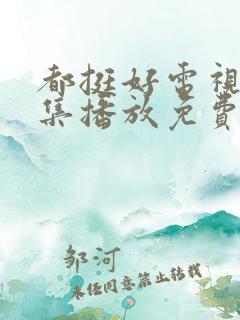 都挺好電視
集播放免費
邹河
未经同意禁止转载